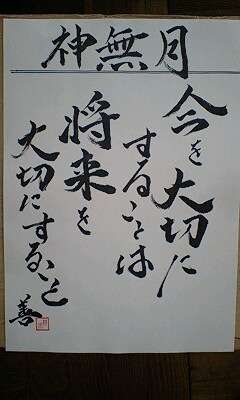 神無月
今を大切に
することは
将来を
大切にすること
善